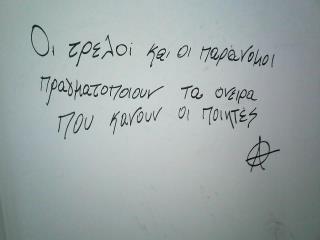 Οι τρελοί και οι παράνομοι
πραγματοποιουν τα ονειρα
που κανουν οι ποιητές